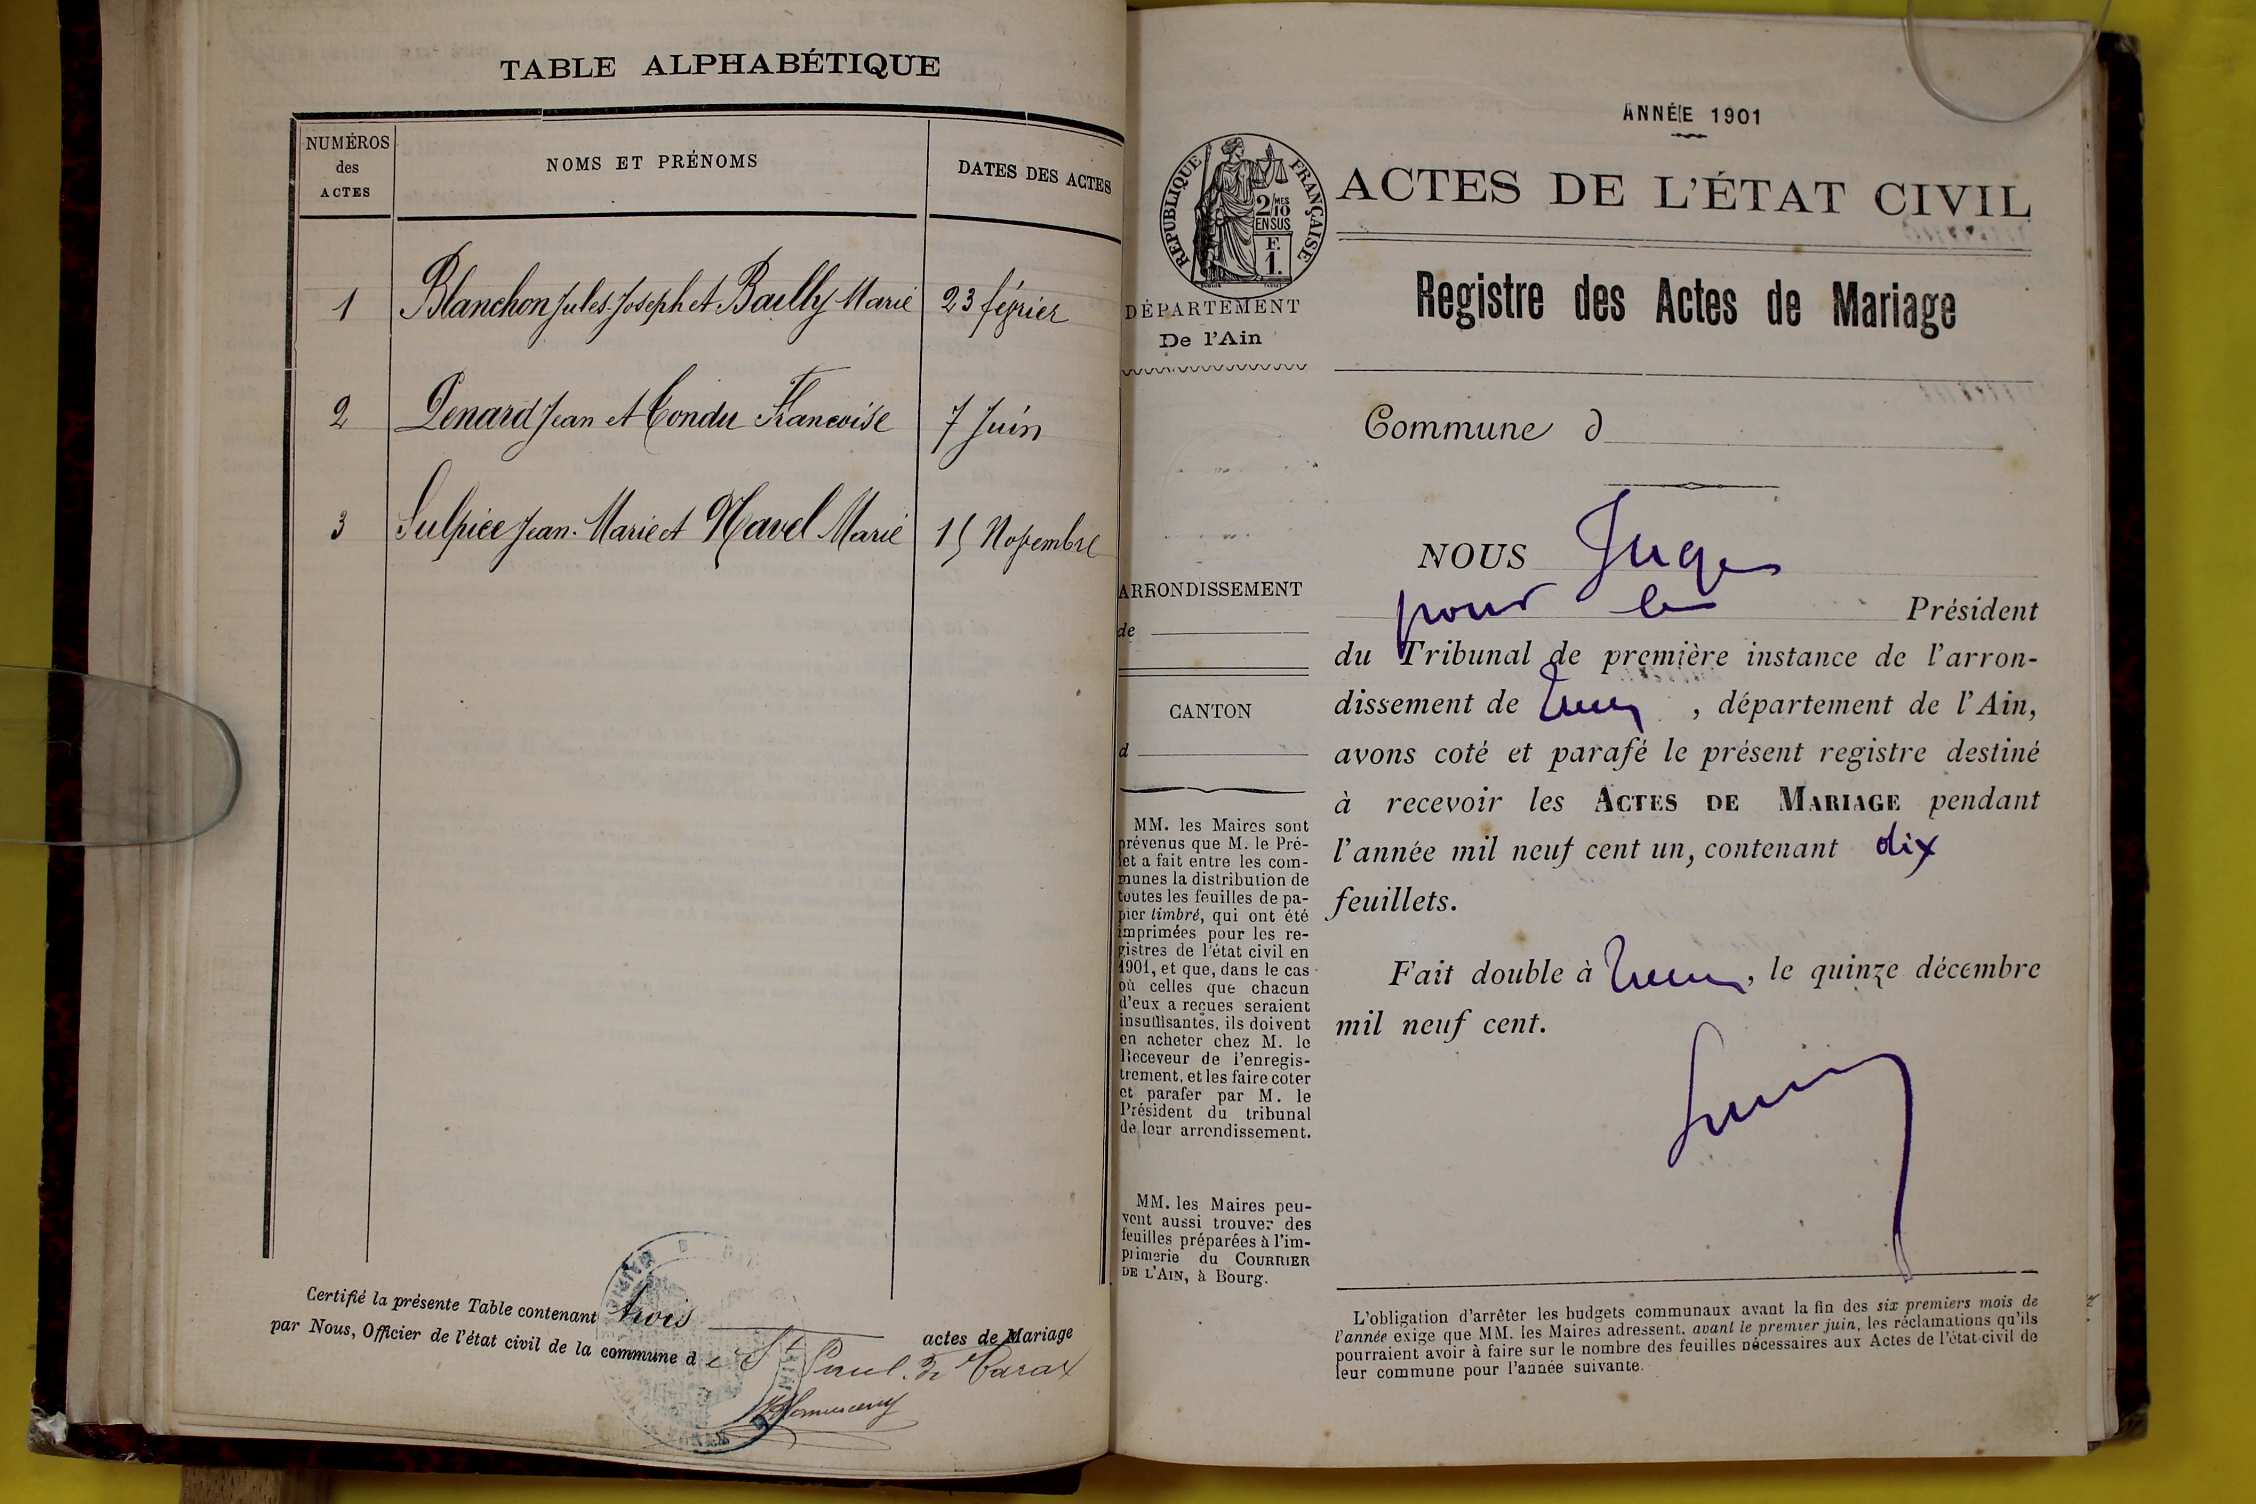 TABLE ALPHABÉTIQUE
NUMÉROS des ACTES
NOMS ET PRÉNOMS
DATES DES ACTES
1 Blanchon Jules-Joseph et Bailly Marie 23 février
2 Penard Jean et Condu Francoise 7 Juin
3 Sulpice Jean-Marie et Navel Marie 15 Novembre
Certifié la présente Table contenant trois actes de Mariage
par Nous, Officier de l'état civil de la commune de St Paul de Varax
RÉPUBLIQUE FRANÇAISE
2/10 MES
EN SUS
F.
1.
DÉPARTEMENT
De l'Ain
ARRONDISSEMENT
de
CANTON
d
MM. les Maires sont
prévenus que M. le Pré-
fet a fait entre les com-
munes la distribution de
toutes les feuilles de pa-
pier timbré, qui ont été
imprimées pour les re-
gistres de l'état civil en
1901, et que, dans le cas
où celles que chacun
d'eux a reçues seraient
insuffisantes, ils doivent
en acheter chez M. le
Receveur de l'enregis-
trement, et les faire coter
et parafer par M. le
Président du tribunal
de leur arrondissement.
MM. les Maires peu-
vent aussi trouver des
feuilles préparées à l'im-
primerie du COURRIER
DE L'AIN, à Bourg.
ANNÉE 1901
ACTES DE L'ÉTAT CIVIL
Registre des Actes de Mariage
Commune d
NOUS Juge
pour le Président
du Tribunal de première instance de l'arron-
dissement de , département de l'Ain,
avons coté et parafé le présent registre destiné
à recevoir les ACTES DE MARIAGE pendant
l'année mil neuf cent un, contenant dix
feuillets.
Fait double à , le quinze décembre
mil neuf cent.
L'obligation d'arrêter les budgets communaux avant la fin des six premiers mois de
l'année exige que MM. les Maires adressent, avant le premier juin, les réclamations qu'ils
pourraient avoir à faire sur le nombre des feuilles nécessaires aux Actes de l'état-civil de
leur commune pour l'année suivante.